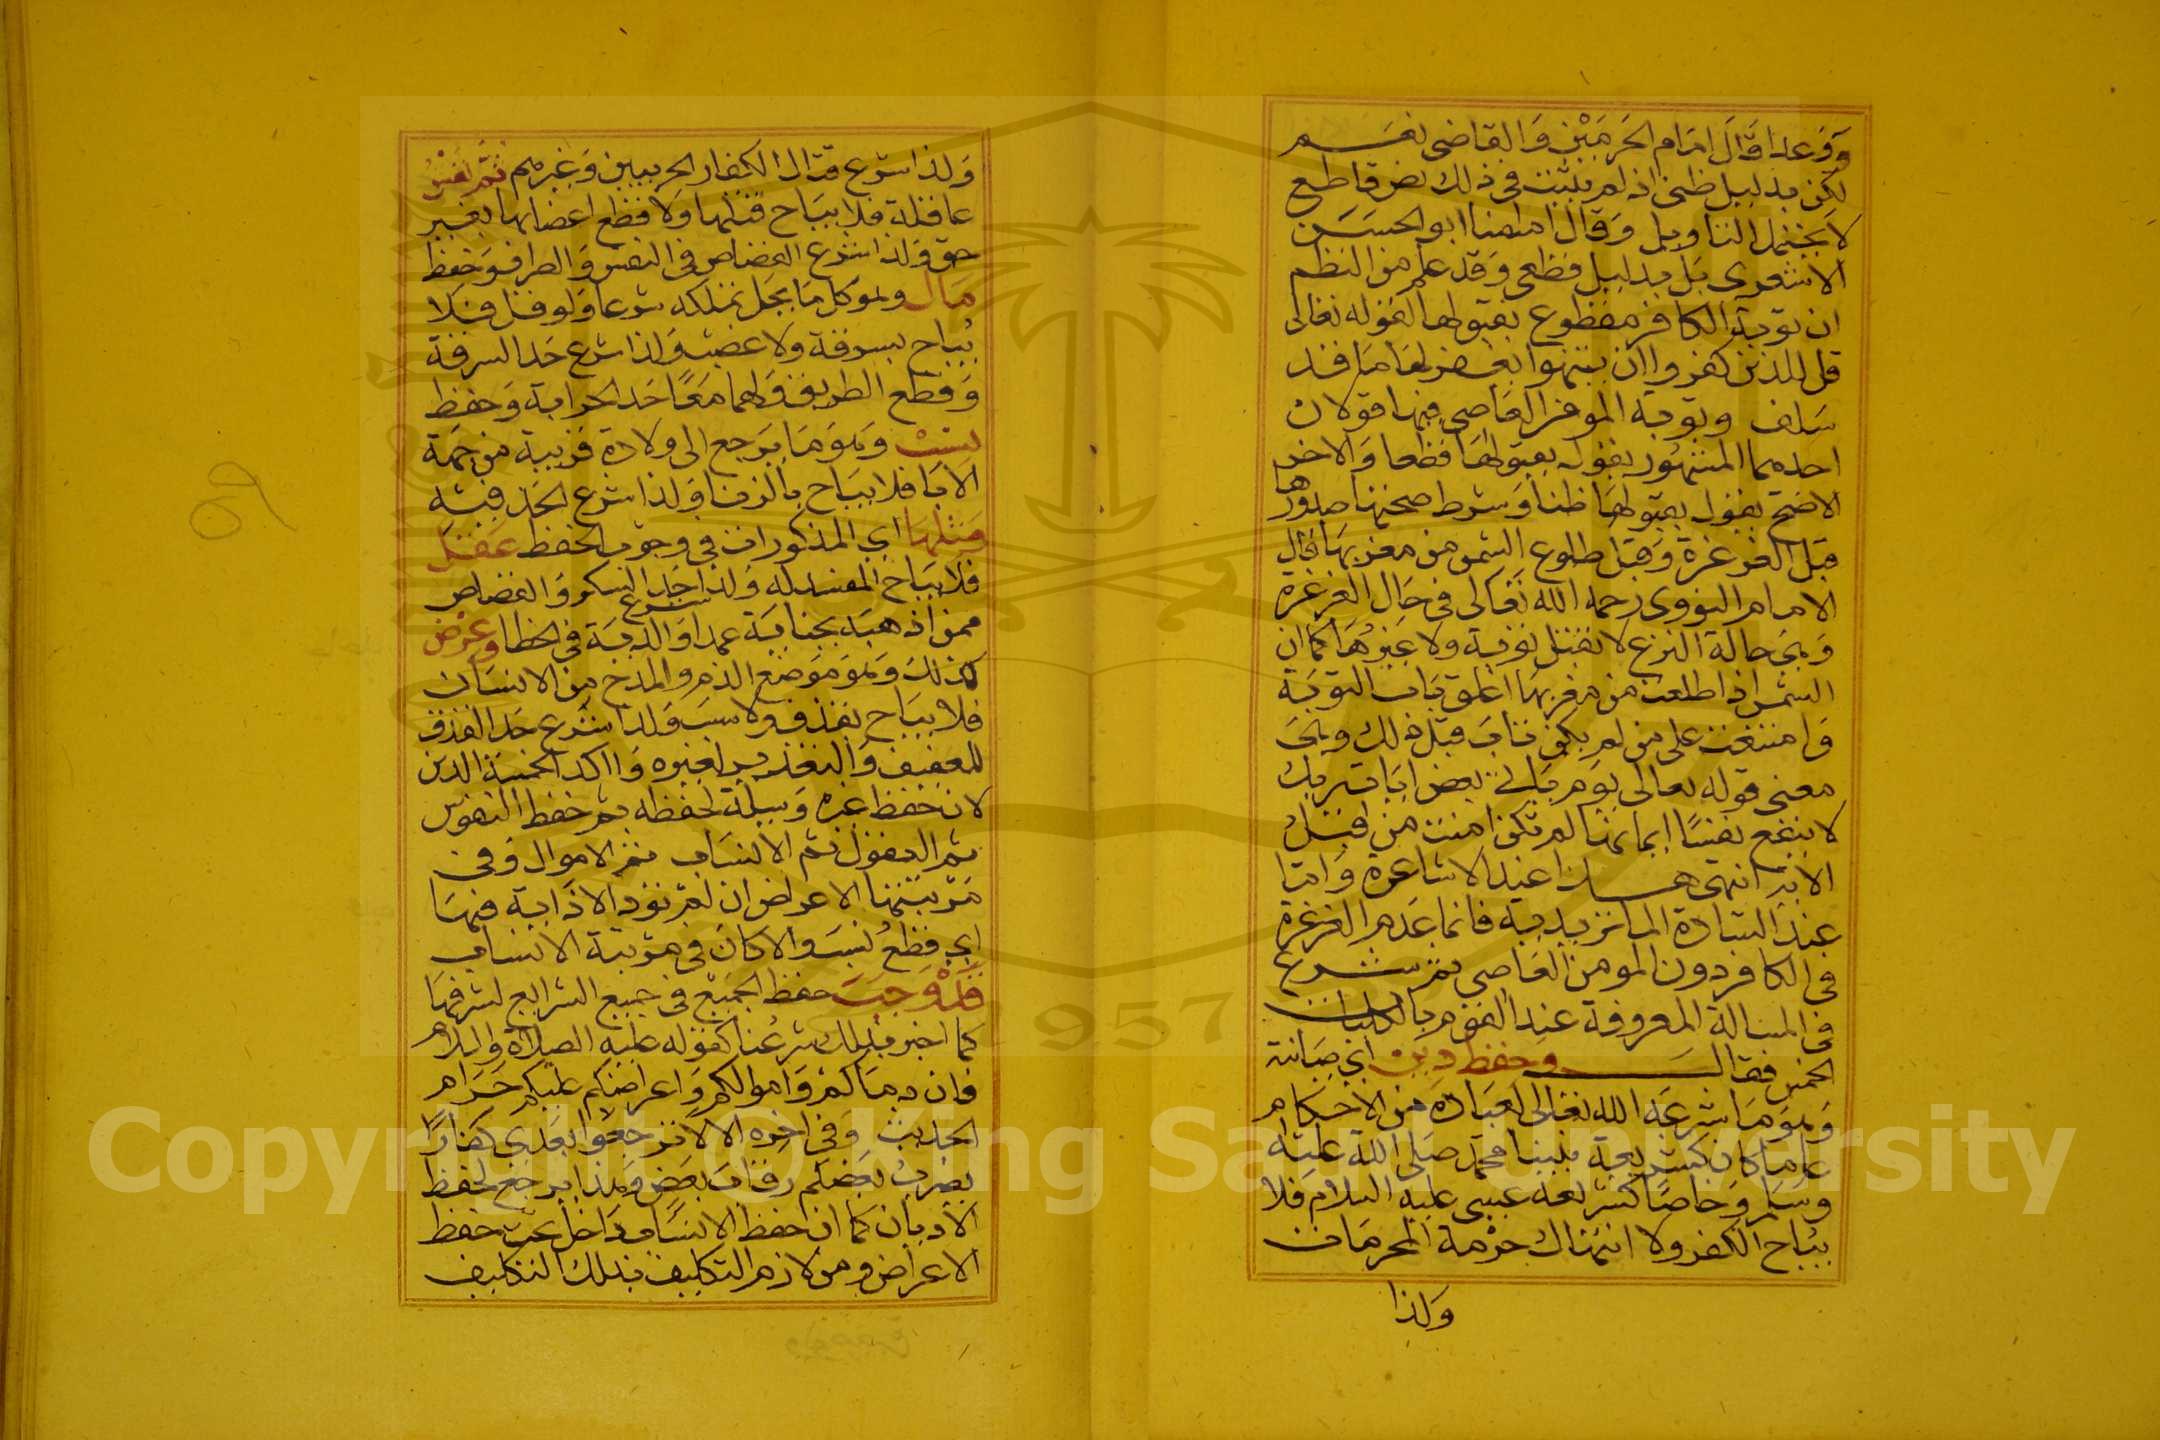 ووعدا قال امام الحرمين والقاضي نعم
لكن بدليل ظني اذ لم يثبت في ذلك نص قاطع
لا يحتمل التاويل وقال امامنا ابو الحسن
الاشعري بل بدليل قطعي وقد علم من النظم
ان توبة الكافر مقطوع بقبولها لقوله تعالى
قل للذين كفروا ان ينتهوا يغفر لهم ما قد
سلف وتوبة المومن العاصي فيها قولان
احدهما المشهور يقول بقبولها قطعا والاخر
الاصح يقول بقبولها ظنا وشرط صحتها صدورها
قبل الغرغرة وقبل طلوع الشمس من مغربها قال
الامام النووي رحمه الله تعالى في حال الغرغرة
وهي حالة النزع لا تقبل توبة ولا غيرها كما ان
الشمس اذا طلعت من مغربها اغلق باب التوبة
وامتنعت على من لم يكن تاب قبل ذلك وهي
معنى قوله تعالى يوم ياتي بعض ايات ربك
لا ينفع نفسا ايمانها لم تكن امنت من قبل
الاية انتهى هذا عند الاشاعرة واما
عند السادة الماتريدية فانما عدم الغرغرة
في الكافر دون المومن العاصي ثم شرع
في المسالة المعروفة عند القوم بالكليات
الخمس فقال وحفظ دين اي صيانة
وهو ما شرعه الله تعالى لعباده من الاحكام
عاما كان كشريعة نبينا محمد صلى الله عليه
وسلم وخاصا كشريعة عيسى عليه السلام فلا
يباح الكفر ولا انتهاك حرمة المحرمات
ولذا
ولذا شرع قتال الكفار الحربيين وغيرهم ثم نفس
عاقلة فلا يباح قتلها ولا قطع اعضايها بغير
حق ولذا شرع القصاص في النفس والطراف وحفظ
مال وهو كل ما يحل تملكه شرعا ولو قل فلا
يباح بسرقة ولا غصب ولذا شرع حد السرقة
وقطع الطريق ولهما معا حد الحرابة وحفظ
نسب وهو ما يرجع الى ولادة قريبة من جهة
الابا فلا يباح بالزنا ولذا شرع الحد فيه
ومثلها اي المذكورات في وجوب الحفظ عقل
فلا يباح المفسد له ولذا شرع حد السكر والقصاص
ممن اذهبه بجناية عمدا والدية في الخطا وعرض
كذلك وهو موضع الذم والمدح من الانسان
فلا يباح بقذف ولا سب ولذا شرع حد القذف
للعفيف والتعذير لغيره واكد الخمسة الدين
لان حفظ غيره وسيلة لحفظه ثم حفظ النفوس
ثم العقول ثم الانساب ثم الاموال وفي
مرتبتها الاعراض ان لم تؤد الاذاية فيها
اي قطع نسب والا كان في مرتبة الانساب
قد وجب حفظ الجميع في جميع الشرايع لشرفها
كما اخبر بذلك شرعنا كقوله عليه الصلاة والسلام
فان دماكم واموالكم واعراضكم عليكم حرام
الحديث وفي اخره الا لا ترجعوا بعدي كفارا
يضرب بعضكم رقاب بعض وهذا يرجع لحفظ
الاديان كما ان حفظ الانساب داخل تحت حفظ
الاعراض ومن لازم التكليف بذلك التكليف
Copyright © King Saud University
1957